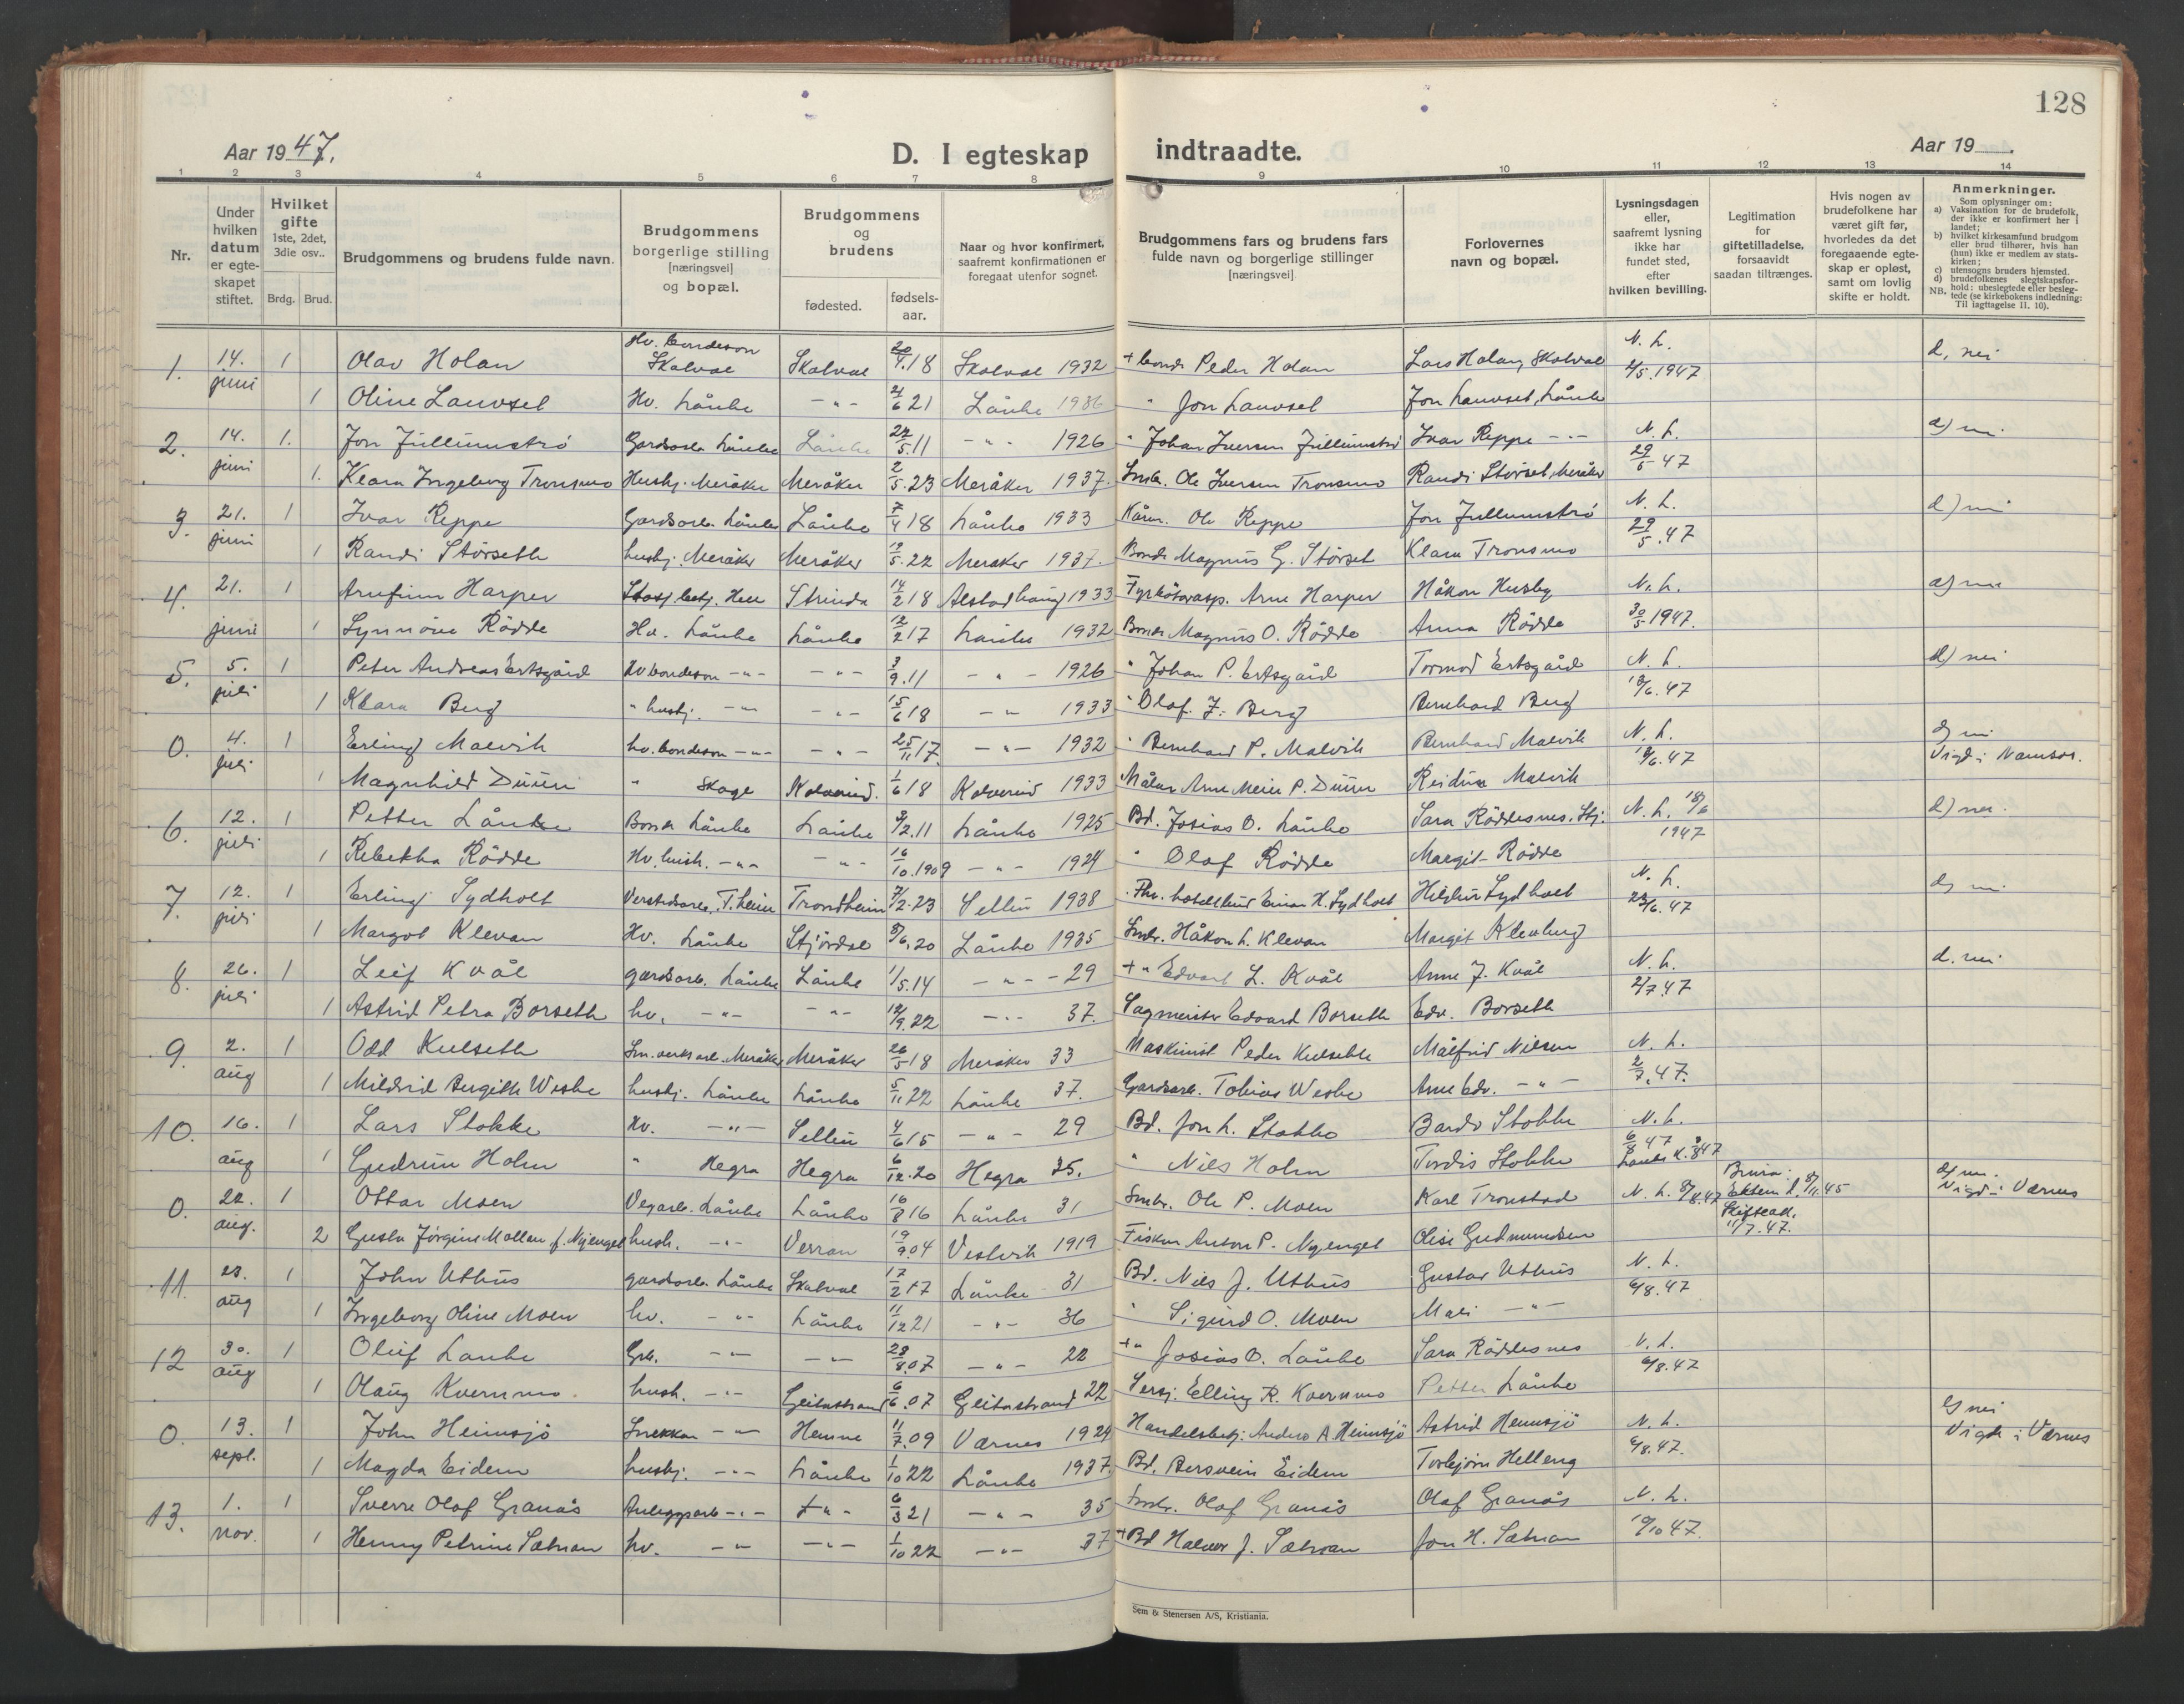 128
Aar 1947.
D. I egteskap indtraadte.
Aar 19
1 2 3 4 5 6 7 8 9 10 11 12 13 14
Nr.
Under hvilken datum er egteskapet stiftet.
Hvilket gifte 1ste, 2det, 3die osv..
Brdg. Brud.
Brudgommens og brudens fulde navn.
Brudgommens borgerlige stilling [næringsvei] og bopæl.
Brudgommens og brudens
fødested.
fødsels-aar.
Naar og hvor konfirmert, saafremt konfirmationen er foregaat utenfor sognet.
Brudgommens fars og brudens fars fulde navn og borgerlige stillinger [næringsvei]
Forlovernes navn og bopæl.
Lysningsdagen eller, saafremt lysning ikke har fundet sted, efter hvilken bevilling.
Legitimation for giftetilladelse, forsaavidt saadan tiltrænges.
Hvis nogen av brudefolkene har været gift før, hvorledes da det foregaaende egteskap er opløst, samt om lovlig skifte er holdt.
Anmerkninger.
Som oplysninger om:
a) Vaksination for de brudefolk, der ikke er konfirmert her i landet;
b) hvilket kirkesamfund brudgom eller brud tilhører, hvis han (hun) ikke er medlem av statskirken;
c) utensogns bruders hjemsted.
d) brudefolkenes slegtskapsforhold: ubeslegtede eller beslegtede (se kirkebokens indledning: Til iagttagelse II. 10).
NB.
1. 14. juni 1 Olav Holan Hv. bondeson Skatval Skatval 20/4.18 Skatval 1932 + bonde Peder Holan Lars Holan, Skatval N. L. 2/5.1947 d, nei
1 Oline Lauvset Hv. Lånke -"- 21/6 21 Lånke 1936 " Jon Lauvset Jon Lauvset, Lånke
2. 14. juni 1. Jon Jullumstrø Gardsarb. Lånke Lånke 5.11 -"- 1926 " Johan Iversen Jullumstrø Ivar Reppe -"- N. L. 29/5 47 d) nei
1. Klara Ingeborg Tronsmo Husbj. Meråker Meråker 2/5.23 Meråker 1937. Småb. Ole Iversen Tronsmo Randi Størset, Meråker
3. 21. juni 1 Ivar Reppe Gardsarb. Lånke Lånke 7/4 18 Lånke 1933 Kårm. Ole Reppe Jon Jullumstrø N. L. 29/5.47 d) nei
1 Randi Størseth husbj. Meråker Meråker 19/5.22 Meråker 1937. Bonde Magnus G. Størset Klara Tronsmo
4. 21. juni 1 Arnfinn Harper Stasj.betj. Hell Strinda 14/2 18 Alstadhaug 1933 Fyrbøterasp. Arne Harper Håkon Husby N. L. 30/5 1947. d) nei
1 Synnøve Rødde Hv. Lånke Lånke 12/2 17 Lånke 1932 Bonde Magnus O. Rødde Anna Rødde
5. 5. juli 1 Peter Andreas Ertsgård Hv bondeson -"- -"- 3/9.11 -"- 1926 " Johan P. Ertsgård Tormod Ertsgård N. L. 13/6.47 d) nei
1 Klara Berg " husbj. -"- -"- 15/6 18 -"- 1933 " Olaf J. Berg Bernhard Berg
0. 4. juli 1 Erling Malvik hv. bondeson -"- -"- 25/11 17. -"- 1932 " Bernhard P. Malvik Bernhard Malvik N. L. 18/6.47 d) nei Vigd i Namsos.
1 Magnhild Duun " Skage Kolvereid. 1/6 18 Kolvereid 1933 Måler Arne Meier P. Duun Reidun Malvik
6. 12. juli 1 Petter Lånke Bonde Lånke Lånke 2.11 Lånke 1925 Bd. Josias O. Lånke Sara Røddesnes. Stj. N. L. 18/6 1947 d) nei.
1 Rebekka Rødde Hv. hush. -"- -"- 16/10.1909 -"- 1924 " Olaf Rødde Margit Rødde
7. 12. juli 1 Erling Sydholt Verkstedarb., T.heim Trondheim 7/2.23 Selbu 1938 Einar H. Sydholt Sydholt N. L. 23/6.47 d) nei
1 Margot Klevan Hv. Lånke Stjørdal 8/6.20 Lånke 1935 Småbr. Håkon L. Klevan Margit
8. 26. juli 1 Leif Kvål gardsarb. Lånke Lånke 1/5.14 -"- 29 + " Edvart L. Kvål Arne J. Kvål N. L. 2/7.47 d. nei
1 Astrid Petra Borseth hv. -"- -"- 12/9.22 -"- 37. Sagmester Edvard Borseth Edv. Borseth
9. 2. aug 1 Odd Kulseth Sm.verksarb. Meråker Meråker 26/5 18 Meråker 33 Maskinist Peder Kulseth Målfrid Nilsen N. L. 2/7.47.
1 Mildrid Bergith Wesche husbj. Lånke Lånke 5/11 22 Lånke 37. Gardsarb. Tobias Arne Edv. -"-
10. 16. aug 1 Lars Stokke Hv. -"- Selbu 4/6 15 -"- 29 Bd. Jon L. Stokke Bardo Stokke N. L. 6/8 47
1 Gudrun Holm " Hegra Hegra 6/12.20 Hegra 35. " Nils Holm Tordis Stokke
0. 22. aug. 1 Ottar Moen Vegarb. Lånke Lånke 16/8 16 Lånke 31 Småbr. Ole P. Moen Karl Tronstad N. L. 8/8.47 Brura: 8/11.45 Skifteatt. 11/7.47. d) nei Vigd i Værnes
2 Gusta Jørgine Mollan, f. Nyenget hush. -"- Verran 19/9.04 Vestvik 1919 Fisker Anton P. Nyenget Olise Gudmundsen
11. 23. aug 1 John Uthus gardsarb. Lånke Skatval 17/2 17 Lånke 31 Bd. Nils J. Uthus Gustav Uthus N. L. 6/8.47
1 Ingeborg Oline Moen hv. -"- Lånke 11/12 21 -"- 36 " Sigurd O. Moen Mali -"-
12 30. aug 1 Oluf Lånke Grb. -"- -"- 28/8.07 -"- 22 + " Josias O. Lånke Sara Røddesnes N. L. 6/8.47
1 Olaug Kvernmo hush. -"- Geitastrand 6/6.07 Geitastrand 22 Sersj. Elling R. Kvernmo Petter Lånke
0. 13. sept. 1 John Heimsjø Snekker -"- Hemne 11/7.09 Værnes 1924 Handelsbetj. Anders A. Heimsjø Astrid Heimsjø N. L. 6/8.47. d) nei Vigde i Værnes
1 Magda Eidem husbj. -"- Lånke 1/10 22 Lånke 1937. Bd. Bersvein Eidem Torbjørn Helleng
13. 1. nov. 1 Sverre Olaf Granås Anleggsarb -"- -"- 6/3 21 -"- 35 Småbr. Olaf Granås Olaf Granås N. L. 10/10 47.
1 Henny Petrine Sætnan hv. -"- -"- 1/10 22 -"- 37 + Bd Halvor J. Sætnan Jon H. Sætnan
Sem & Stenersen A/S, Kristiania.